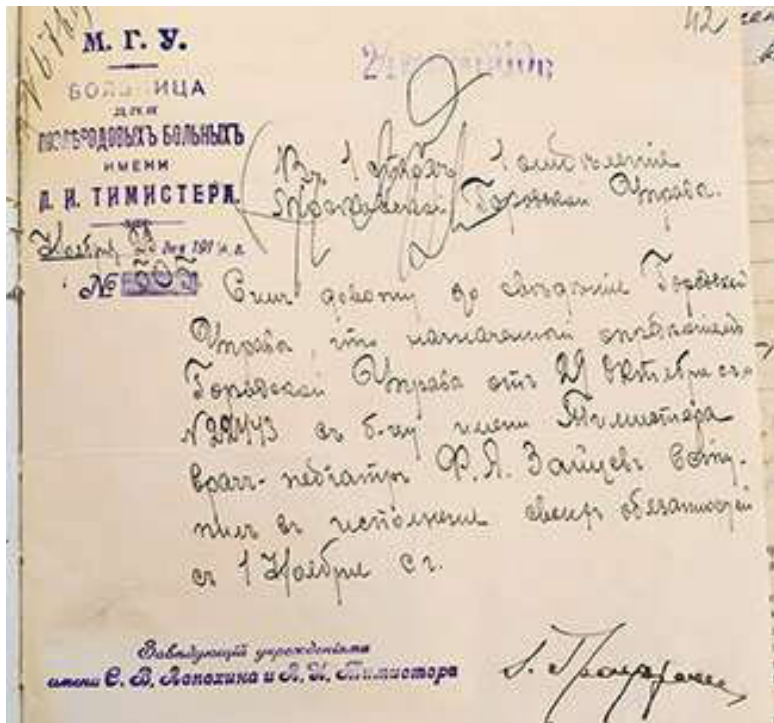 42
М. Г. У.
БОЛЬНИЦА
ДЛЯ
ПОСЛѢРОДОВЫХЪ БОЛЬНЫХЪ
ИМЕНИ
Л. И. ТИМИСТЕРА.
Ноября 23 дня 191 г.
№ 505
Въ 1 столъ 1 отдѣленія
Московской Городской Управы.
Симъ довожу до свѣдѣнія Городской
Управы, что назначенный
Городской Управы отъ 29 Октября с.г.
№ 22473 въ б-цу имени Тимистера
врачъ-педіатръ Ф. Я. Зайцевъ всту-
пилъ въ исполненіе своихъ обязанностей
съ 1 Ноября с.г.
Завѣдующій учрежденіями
имени С. В. Лопохина и Л. И. Тимистера